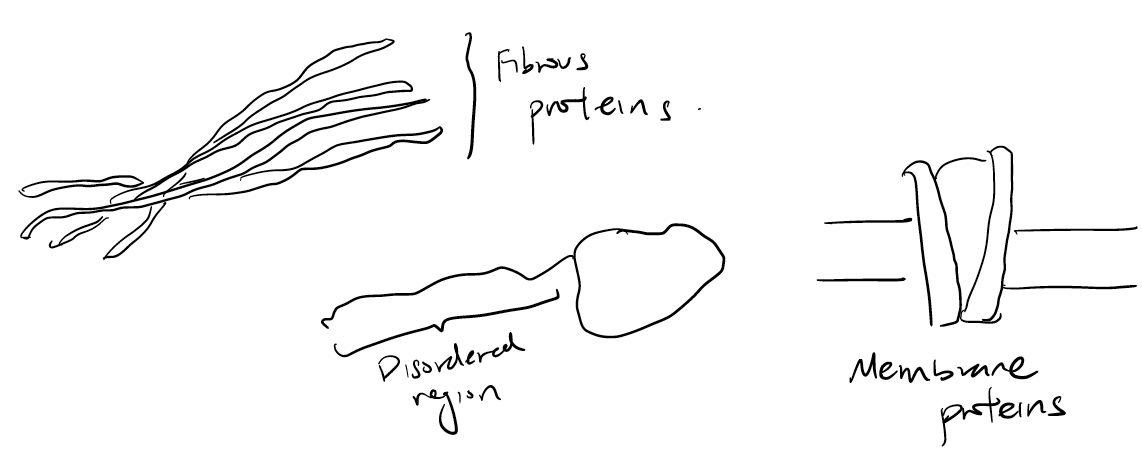 Fibrous
proteins.
Disordered
region
Membrane
proteins